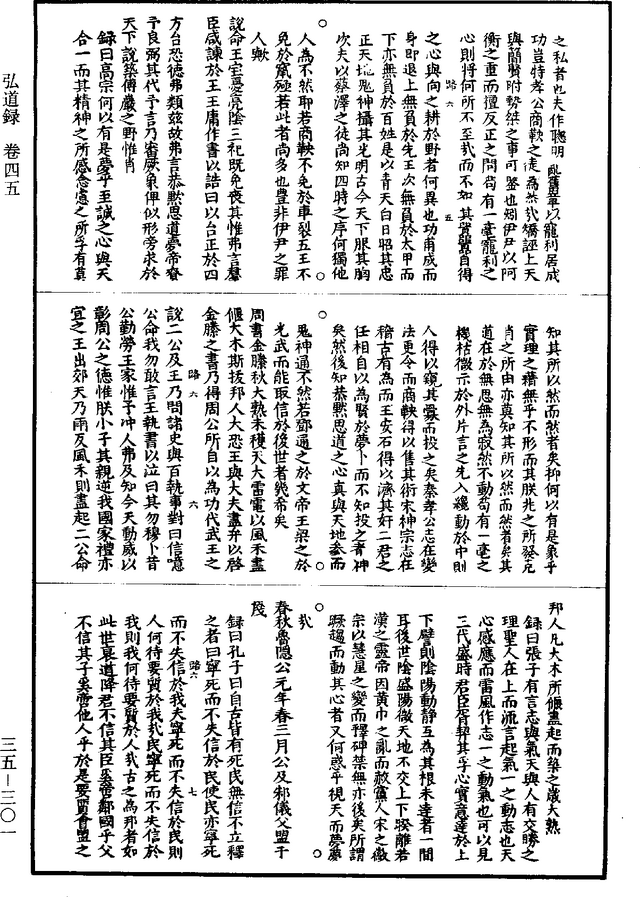 弘道録　卷四五
三五—三〇一
之私者也夫作聰明亂舊章以寵利居成
功豈特孝公商鞅之徒爲然哉矯誣上天
與簡賢附勢桀之事可鑒也矧伊尹以阿
衡之重而擅反正之問苟有一毫寵利之
心則將何所不至哉而不知其實囂囂自得
路六　五
之心與向之耕於野者何異也功甫成而
身即退上無負於先王次無負於太甲而
下亦無負於百姓是以青天白日昭其忠
正天地鬼神攝其光明古今天下服其胸
次夫以蔡澤之徒尚知四時之序何獨他
人為不然耶若商鞅不免於車裂五王不
免於竄殛若此者尚多也豈非伊尹之罪
人歟
說命王宅憂亮陰三祀既免喪其惟弗言羣
臣咸諫於王王庸作書以誥曰以台正於四
方台恐德弗類茲故弗言恭默思道夢帝賚
予良弼其代予言乃審厥象俾以形旁求於
天下說築傅巖之野惟肖
録曰高宗何以有是夢乎至誠之心與天
合一而其精神之所感念慮之所孚有莫
知其所以然而然者矣抑何以有是象乎
實理之積無乎不形而其朕兆之所發克
肖之所由亦莫知其所以然而然者矣其
道在於無思無為寂然不動苟有一毫之
機括微示於外片言之先入纔動於中則
人得以窺其釁而投之矣秦孝公志在變
法更令而商鞅得以售其術宋神宗志在
稽古有為而王安石得以濟其奸二君之
任相自以為賢於夢卜而不知投之者神
矣然後知恭默思道之心真與天地參而
鬼神通不然若鄧通之於文帝王梁之於
光武而能取信於後世者幾希矣
周書金縢秋大熟未穫天大雷電以風禾盡
偃大木斯拔邦人大恐王與大夫盡弁以啓
金縢之書乃得周公所自以為功代武王之
路六　六
說二公及王乃問諸史與百執事對曰信噫
公命我勿敢言王執書以泣曰其勿穆卜昔
公勤勞王家惟予冲人弗及知今天動威以
彰周公之德惟朕小子其親逆我國家禮亦
宜之王出郊天乃雨反風禾則盡起二公命
邦人凡大木所偃盡起而築之歲大熟
録曰張子有言志與氣天與人有交勝之
理聖人在上而流言起氣一之動志也天
心感應而雷風作志一之動氣也可以見
三代盛時君臣胥契其孚心實意達於上
下譬則陰陽動靜互為其根未達者一間
耳後世陰盛陽微天地不交上下睽離若
漢之靈帝因黄巾之亂而赦黨人宋之徽
宗以慧星之變而釋碑禁無亦後矣所謂
蹶趨而動其心者又何惑乎視天而夢夢
哉
春秋魯隱公元年春三月公及邾儀父盟于
蔑
録曰孔子曰自古皆有死民無信不立釋
之者曰寧死而不失信於民使民亦寧死
路六　七
而不失信於我夫寧死而不失信於民則
人何待要質於我哉民寧死而不失信於
我則我何待要質於人哉古之為邦者如
此世衰道降君不信其臣奚啻鄰國乎父
不信其子奚啻他人乎於是要質會盟之